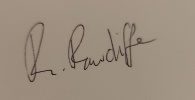 R. Rawcliffe